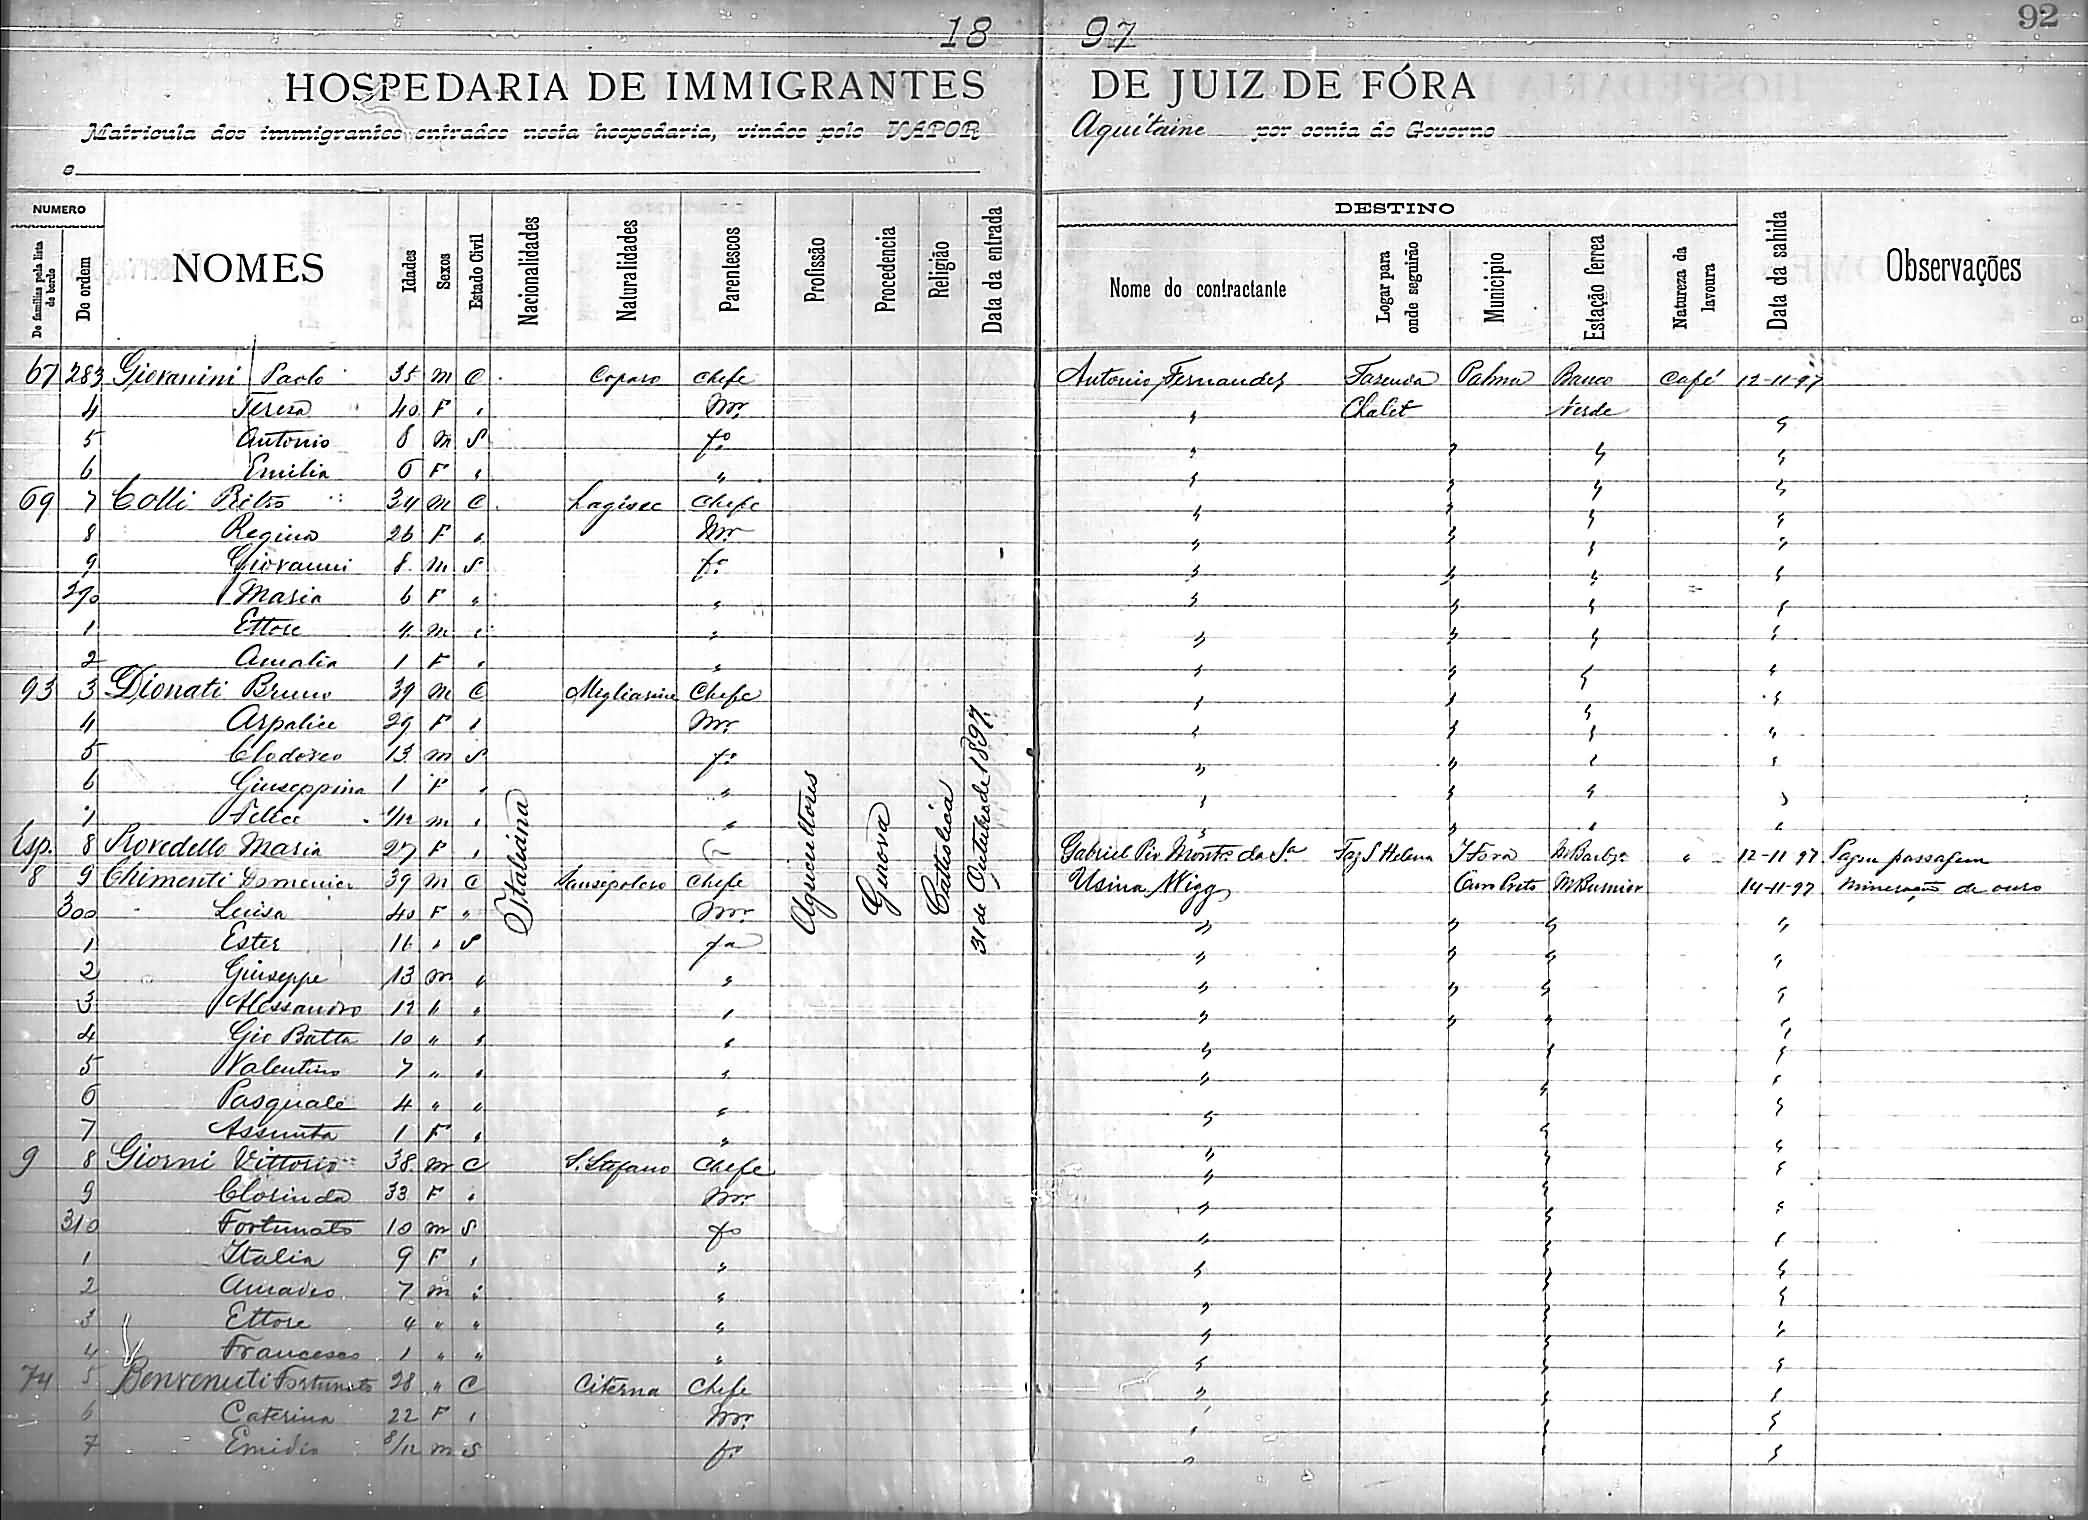 18 97
92
HOSPEDARIA DE IMMIGRANTES DE JUIZ DE FÓRA
Matricula dos immigrantes entrados nesta hospedaria, vindos pelo VAPOR Aquitaine por conta do Governo
e
NUMERO DESTINO
De familias pela lista de bordo De ordem NOMES Idades Sexos Estado Civil Nacionalidades Naturalidades Parentescos Profissão Procedencia Religião Data da entrada Nome do contractante Logar para onde seguirão Municipio Estação ferrea Natureza da lavoura Data da sahida Observações
67 283 Giovanini Paolo 35 M C Coparo Chefe Antonio Fernandes Fazenda Palma Banco Café 12-11-97
4 Tereza 40 F " Mr. " Chalet Verde "
5 Antonio 8 M S fo " " " "
6 Emilia 6 F " " " " " "
69 7 Colli Pietro 34 M C Chefe " " " "
8 Regina 26 F " Mr. " " " "
9 Giovanni 8 M S fo " " " "
290 Maria 6 F " " " " " "
1 Ettore 4 M " " " " " "
2 Amalia 1 F " " " " " "
93 3 Dionati Bruno 39 M C Migliarino Chefe " " " "
4 Arpalice 29 F " Mr. " " " "
5 Clodoveo 13 M S fo " " " "
6 Giuseppina 1 F " " " " " "
7 Felice 1/12 M " " " " " "
Esp. 8 Rovedello Maria 27 F " Gabriel Pio Montro da Sa Faz S. Helena J Fora M Barbza " 12-11 97 Pagou passagem
8 9 Chimenti Domenico 39 M C Sansepolcro Chefe Usina Wigg Ouro Preto M Burnier 14-11-97 Mineração de ouro
300 Luisa 40 F " Mr. " " " "
1 Ester 16 " S fa " " " "
2 Giuseppe 13 M " " " " " "
3 Alessandro 12 " " " " " " "
4 Gio Batta 10 " " " " " "
5 Valentino 7 " " " " " "
6 Pasquale 4 " " " " " "
7 Assunta 1 F " " " "
9 8 Giorni Vittorio 38 M C S. Stefano Chefe " " "
9 Clorinda 33 F " Mr. " " "
310 Fortunato 10 M S fo " " "
1 Italia 9 F " " " " "
2 Amadeo 7 M " " " " "
3 Ettore 4 " " " " " "
4 Francesco 1 " " " " " "
74 5 Benvenuti Fortunato 28 " C Citerna Chefe " " "
6 Caterina 22 F " Mr. " " "
7 Emidio 8/12 M S fo " " "
Italiana
Agricultores
Genova
Catholica
31 de Outubro de 1897